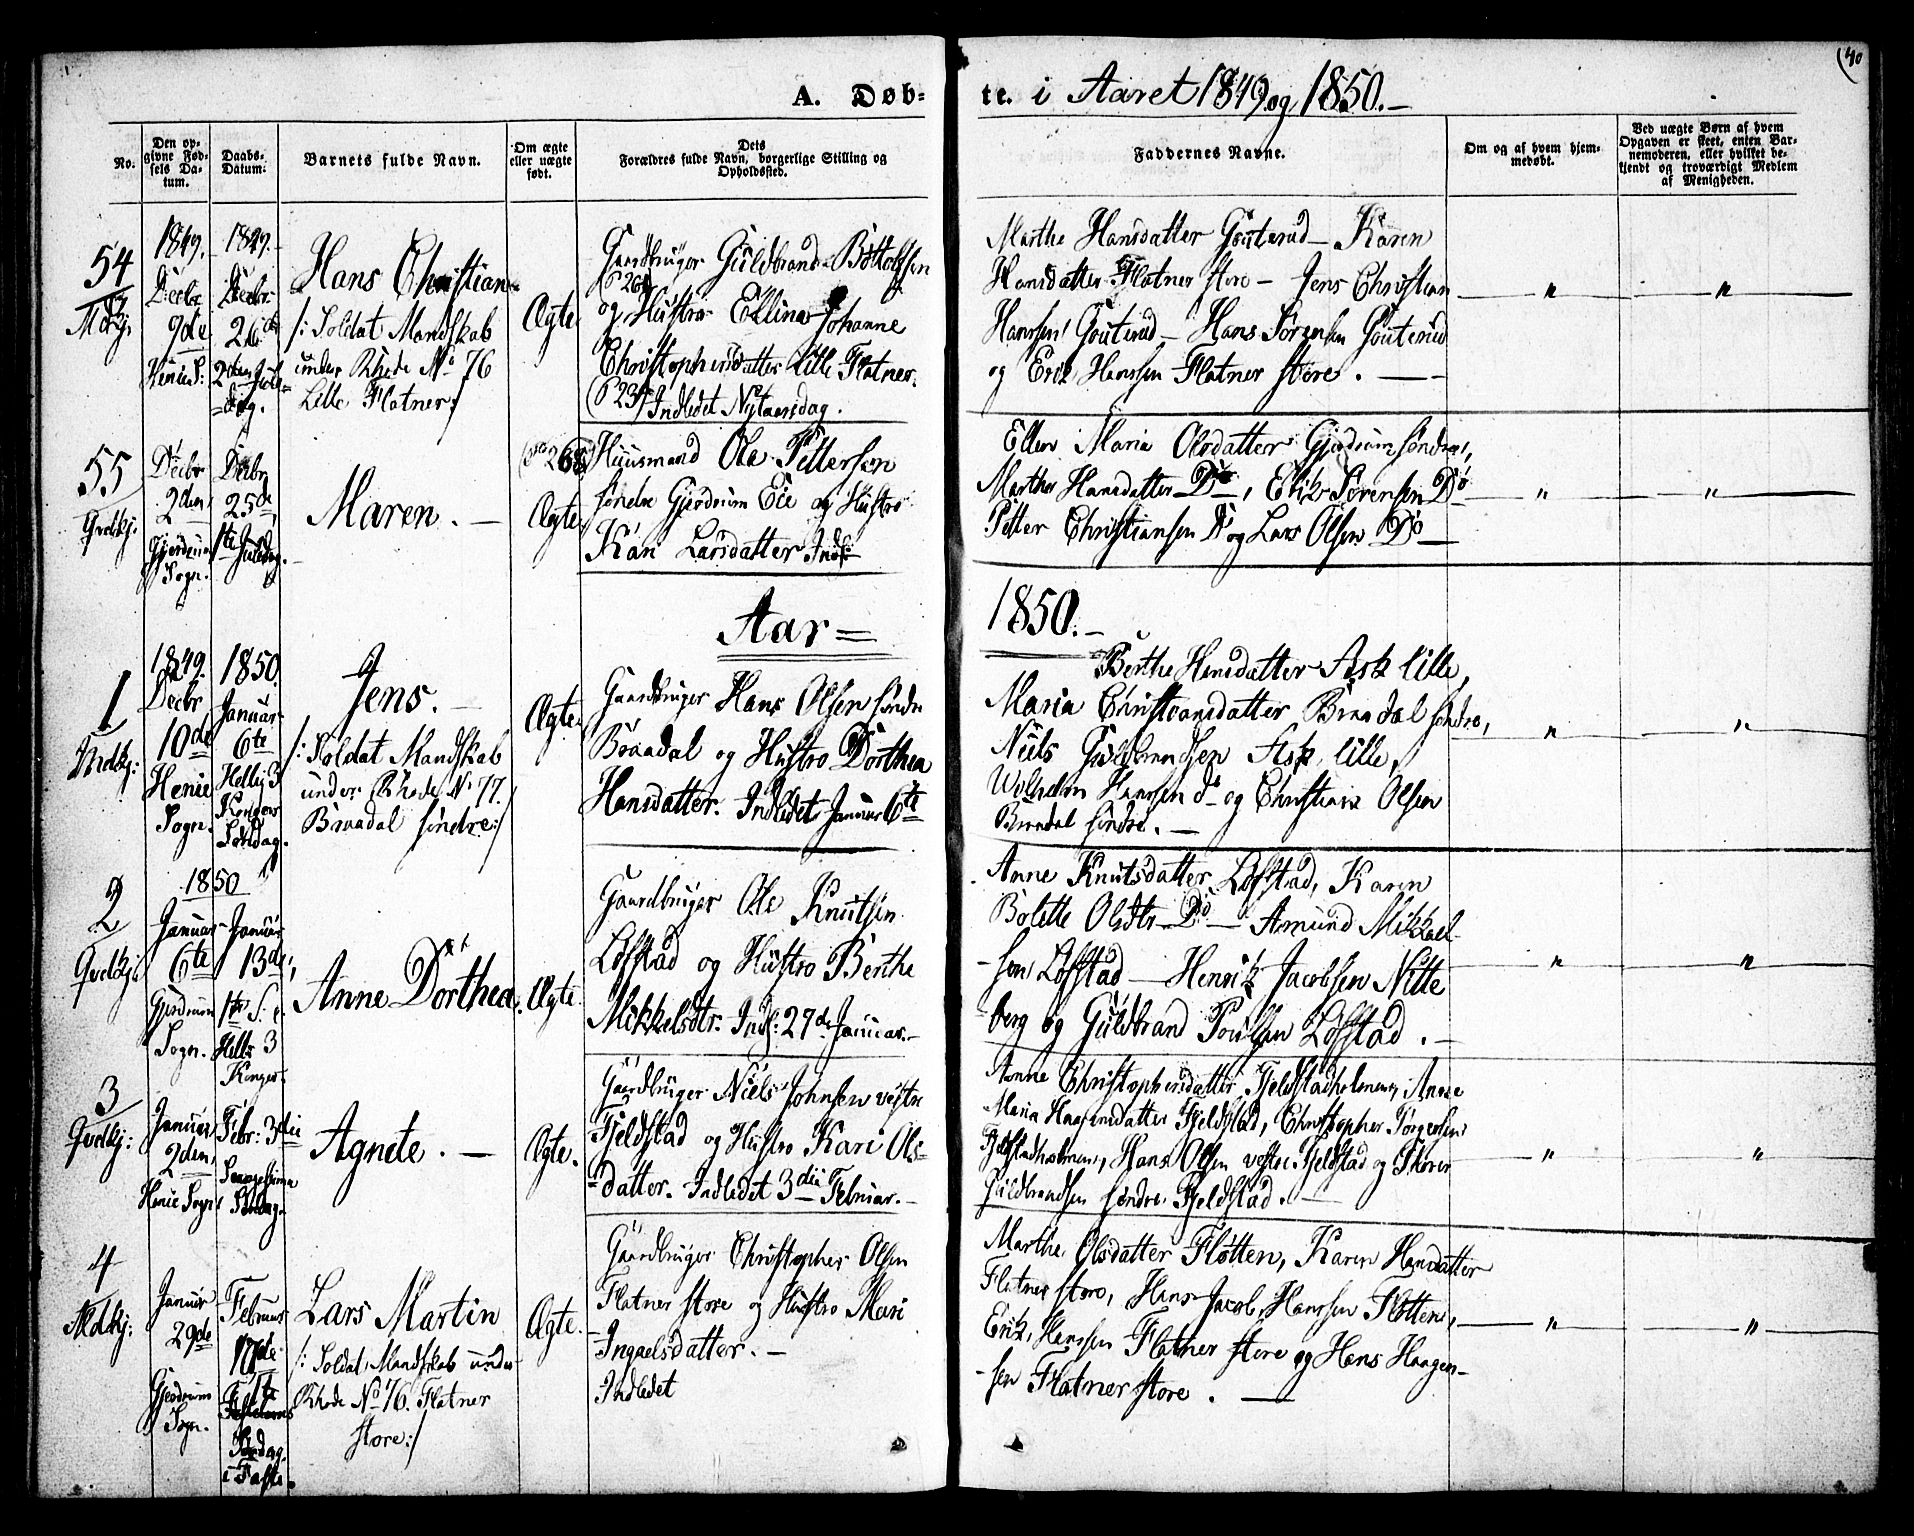 40
A. Døb-
te. i Aaret 1849 og 1850.-
No.
Den op-
givne Fød-
sels Da-
tum.
Daabs-
Datum.
Barnets fulde Navn.
Om ægte
eller uægte
født.
Dets
Forældres fulde Navn, borgerlige Stilling og
Opholdssted.
Faddernes Navne.
Om og af hvem hjem-
medøbt.
Ved uægte Børn af hvem
Opgaven er skeet, enten Bar-
nemoderen, eller hvilket be-
kjendt og troværdigt Medlem
af Menigheden.
54
Mdkj.
1849.
Decbr
9de
Henie S:
1849.
Decbr
26de
2den Jule-
=dag.
Hans Christian
/: Soldat Mandskab
under Rhode No 76
Lille Flatner:/
Ægte
Gaardbruger Guldbrand Bottolfsen
og Hustro Ellina Johanne
Christophersdatter Lille Flatner.
Indledet Nytaarsdag.
Marthe Hansdatter Gouterud - Karen
Hansdatter Flatner store - Jens Christian
Hanssen Gouterud - Hans Sørensen Gouterud
og Erik Hanssen Flatner store.
"
"
55
Qvdkj:
Decbr
2den
Gjerdrum
Sogn.
Decbr
25de
1ste Juledag.
Maren.
Ægte
Huusmand Ole Pettersen
søndre Gjerdrum Eie og Hustro
Kari Larsdatter Indl:
Ellen Maria Olsdatter Gjerdrum søndre,
Marthe Hansdatter Do, Erik Sørensen Do
Petter Christiansen Do og Lars Olsen Do
"
"
Aar =
1850.-
1
Mdkj:
1849.
Decbr
10de
Henie
Sogn.
1850.
Januar
6te
Hellig 3
Konger
Søndag.
Jens.
/: Soldat Mandskab
under Rhode No 77.
Braadal søndre:/
Ægte
Gaardbruger Hans Olsen søndre
Braadal og Hustro Dorthea
Hansdatter. Indledet Januar 6te
Berthe Hansdatter Ask lille,
Maria Christiansdatter Braadal søndre,
Niels Guldbrandsen Ask lille,
Wilhelm Hanssen do og Christian Olsen
Braadal søndre.
"
"
2
Qvdkj:
1850
Januar
6te
Gjerdrum
Sogn.
Januar
13de,
1ste S: e.
Hell: 3
Konger.
Anne Dorthea.
Ægte
Gaardbruger Ole Knutsen
Løfstad og Hustro Berthe
Mikkelsdtr. Indl: 27de Januar.-
Anne Knutsdatter Løfstad, Karen
Bolette Olsdtr Do - Amund Mikkel-
-sen Løfstad - Henrik Jacobsen Nitte
berg og Guldbrand Poulsen Løfstad.-
"
"
3
Qvdkj:
Januar
2den
Henie Sogn
Febr: 3die
Søndag.
Agnete.
Ægte.
Gaardbruger Niels Johnsen vestre
Fjeldstad og Hustro Kari Ols-
=datter. Indledet 3die Februar.-
Anne Christophersdatter Fjeldstadholmen, Anne
Maria Haagensdatter Fjeldstad, Christopher Jørgensen
Fjeldstadholmen, Hans Olsen vestre Fjeldstad og Thorer
Guldbrandsen søndre Fjeldstad.
"
"
4
Mdkj:
Januar
29de
Gjerdrum
Sogn.
Februar
Søndag
i Faste.
Lars Martin
/: Soldat Mandskab under
Rhode No 76. Flatner
store:/
Ægte.
Gaardbruger Christopher Olsen
Flatner store og Hustro Mari
Ingaelsdatter.-
Indledet
Marthe Olsdatter Fløtten, Karen Hansdatter
Flatner store, Hans Jacob Hanssen Fløtten,
Erik Hanssen Flatner store og Hans Haagen-
-sen Flatner store.
"
"